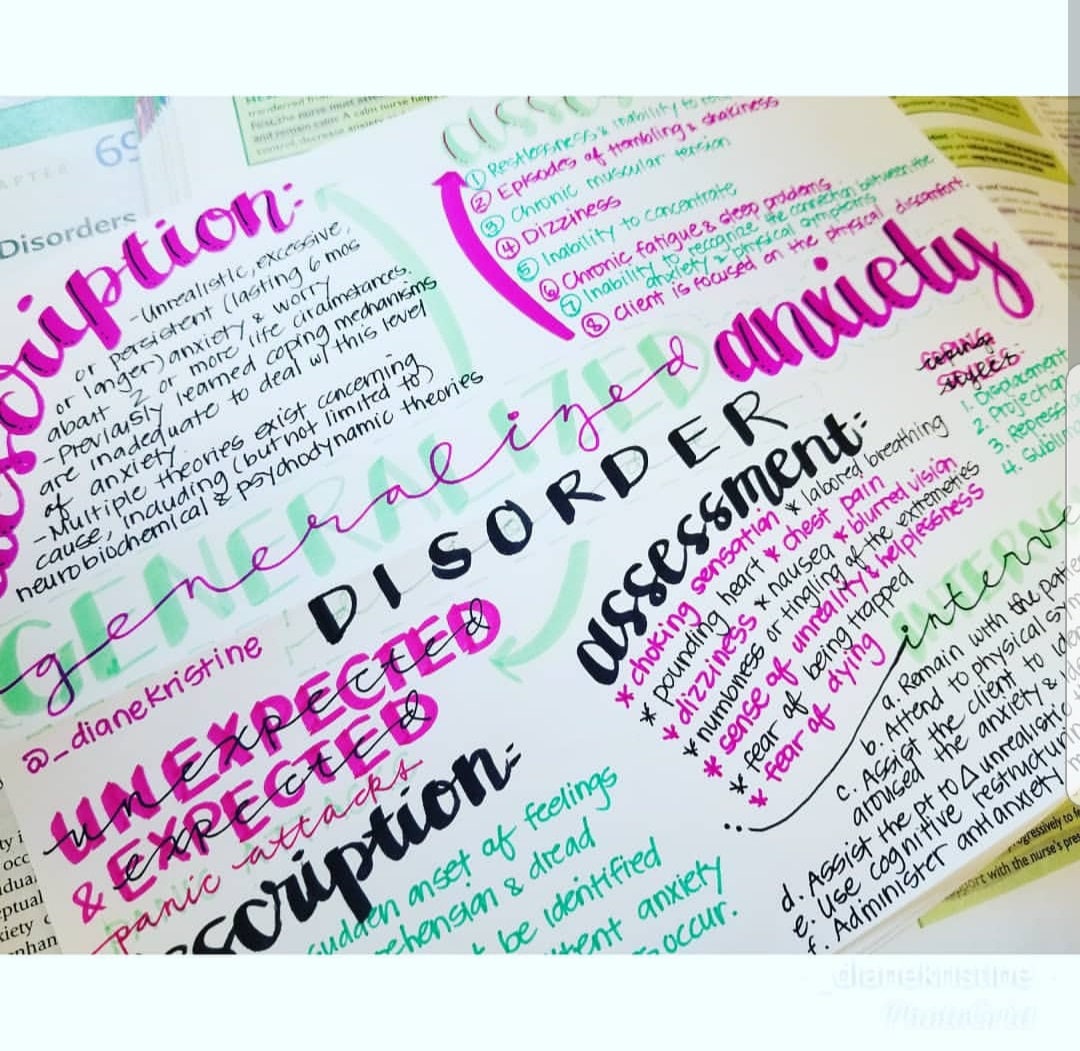 69
Disorders
ription:
-Unrealistic, excessive,
or persistent (lasting 6 mos
or longer) anxiety & worry
about 2 or more life circumstances.
-Previously learned coping mechanisms
are inadequate to deal w/ this level
of anxiety.
-Multiple theories exist concerning
cause, including (but not limited to)
neurobiochemical & psychodynamic theories
asse
① Restlessness & inability to
② Episodes of trembling & shakiness
③ Chronic muscular tension
④ Dizziness
⑤ Inability to concentrate
⑥ Chronic fatigue & sleep problems
⑦ Inability to recognize the connection between the
anxiety & physical symptoms
⑧ Client is focused on the physical discomfort.
GENERALIZED
generalized anxiety
DISORDER
coping
styles:
1. Displacement
2. Projection
3. Repress
4. Sublim
@_dianekristine
UNEXPECTED
unexpected
& EXPECTED
expected
panic attacks
scription:
sudden onset of feelings
ehension & dread
t be identified
anxiety
occur.
assessment:
* choking sensation * labored breathing
* pounding heart * chest pain
* dizziness * nausea * blurred vision
* numbness or tingling of the extremeties
* sense of unreality & helplessness
* fear of being trapped
* fear of dying
INTERVE
interve
a. Remain with the patie
b. Attend to physical sym
c. Assist the client to iden
aroused the anxiety &
d. Assist the pt to Δ unrealistic
e. Use cognitive restructurin
f. Administer antianxiety
port with the nurse's pre
_dianekristine